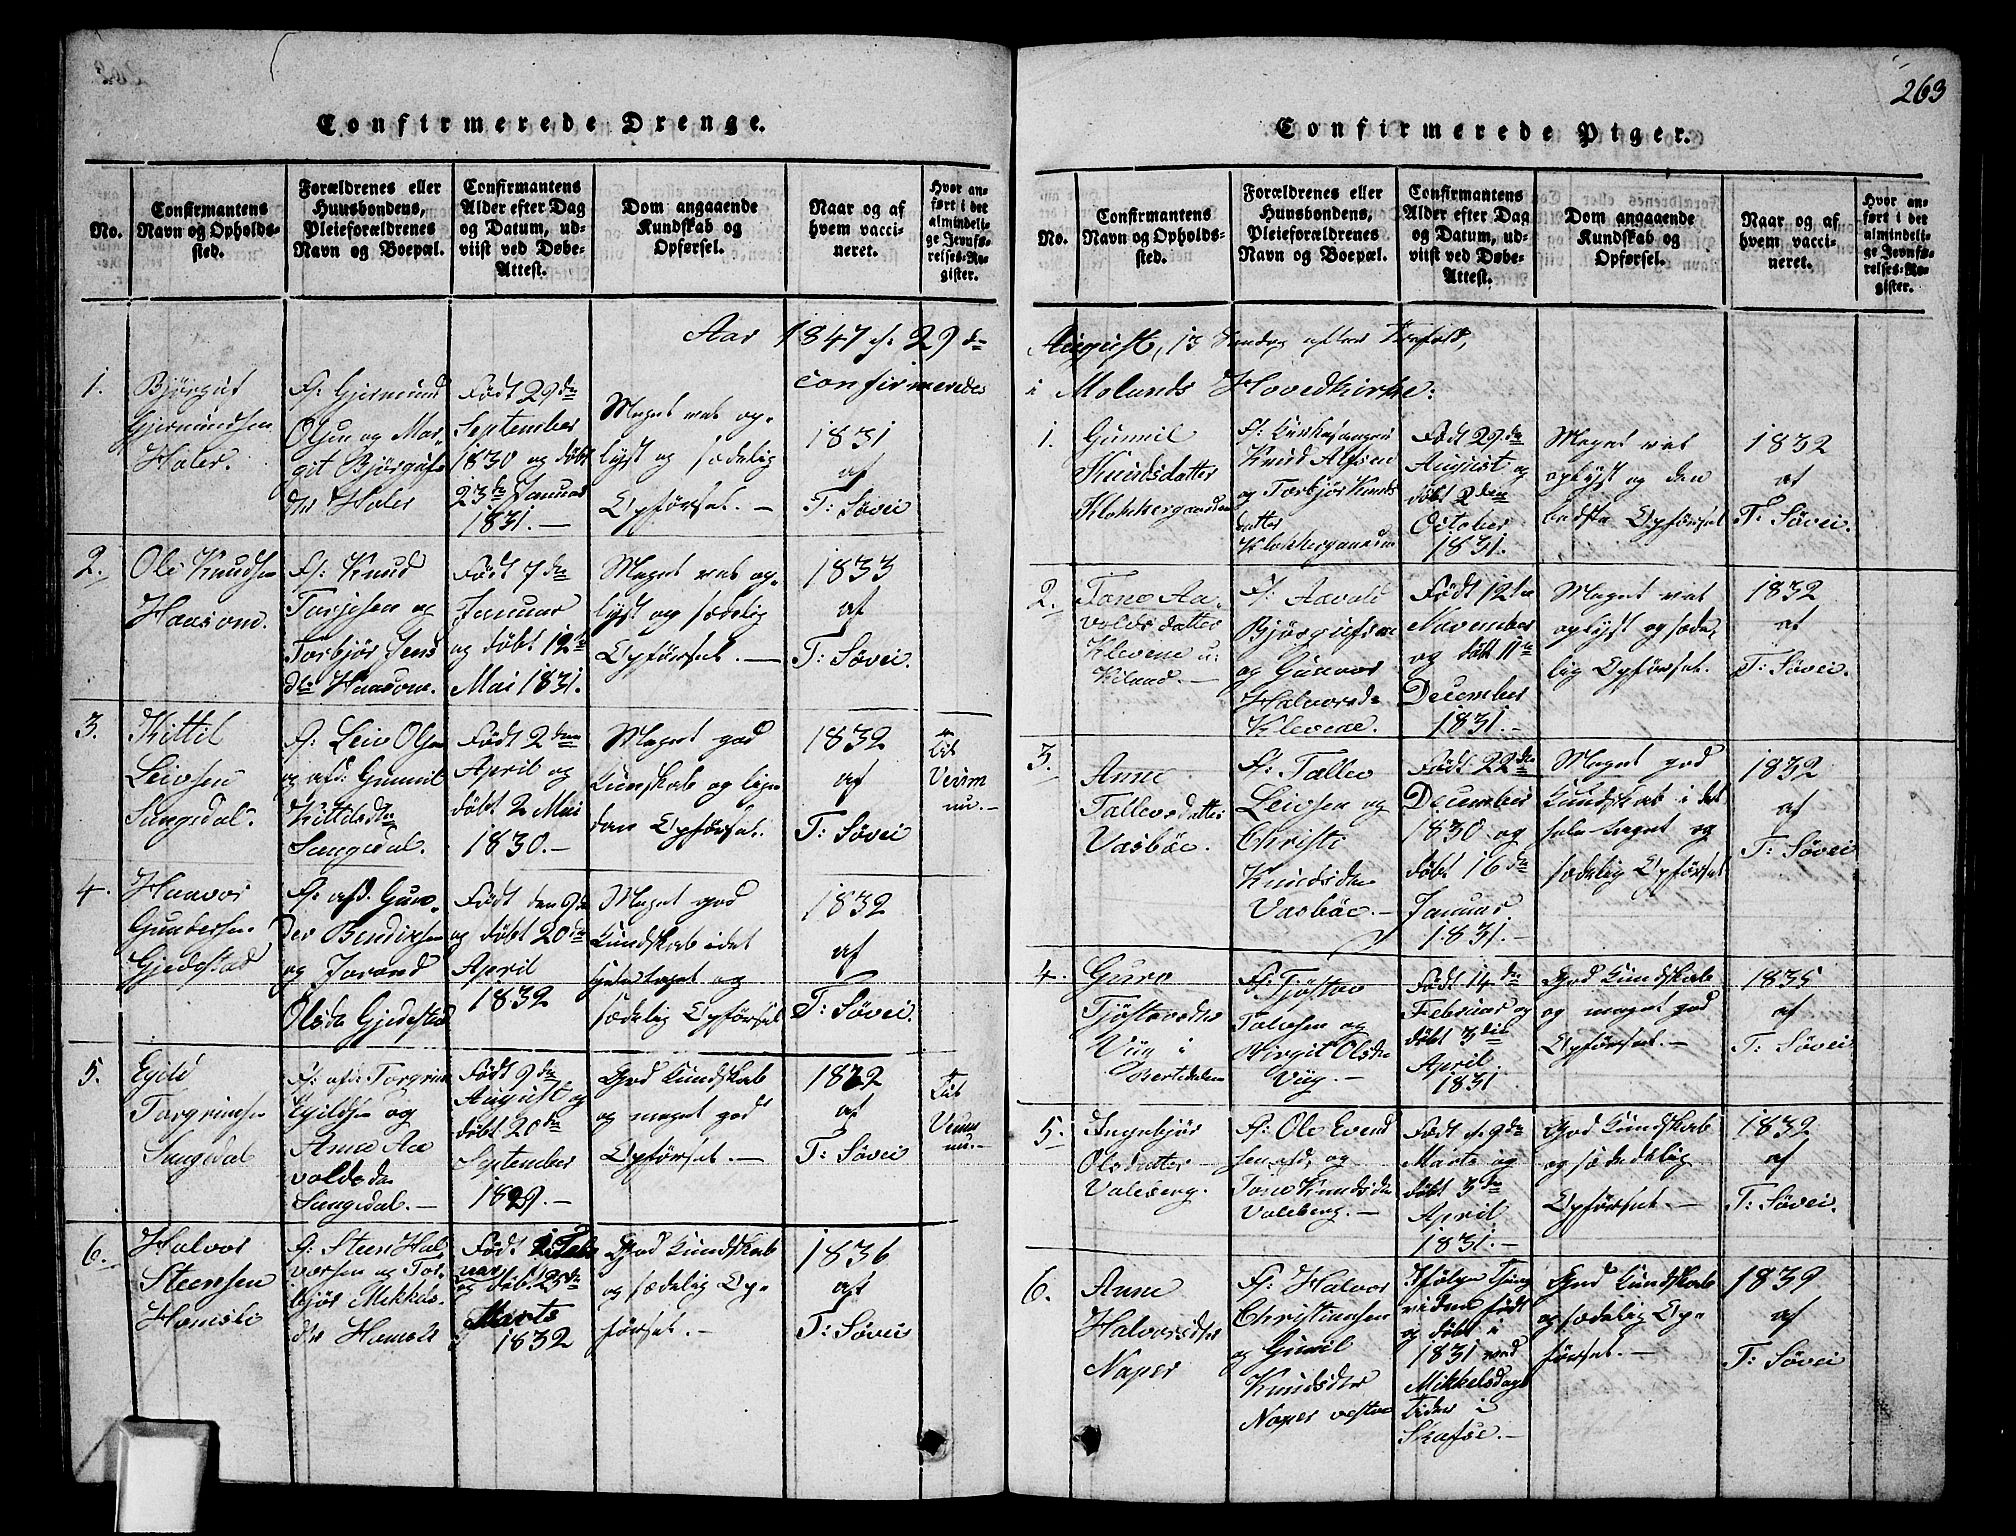 263
Confirmerede Drenge.
No.
Confirmantens
Navn og Opholds-
sted.
Forældrenes eller
Huusbondens,
Pleieforældrenes
Navn og Boepæl.
Confirmantens
Alder efter Dag
og Datum, ud-
viist ved Døbe-
Attest.
Dom angaaende
Kundskab og
Opførsel.
Naar og af
hvem vacci-
neret.
Hvor an-
ført i det
almindeli-
ge Jevnfø-
relses-Re-
gister.
Aar 1847 d. 29de
confirmerede
1.
Bjørguf
Gjermundsen
Holer.
F: Gjermund
Olsen og Mar-
git Bjørgufs
dtr Holer
Født 29de
September
1830 og døbt
23de Januar
1831.-
Meget vel op-
lyst og sædelig
Opførsel.-
1831
af
T: Søvei
2.
Ole Knudsen
Haasom.
F: Knud
Tarjesen og
Torbjør Jens
dtr Haasom.
Født 7de
Januar
og døbt 12te
Mai 1831.
Meget vel op-
lyst og sædelig
Opførsel.-
1833
af
T: Søvei.
3.
Kittil
Leivsen
Sangsdal.
F: Leiv Olsen
og afd: Gunnil
Kittilsdtr
Sangsdal.
Født 2den
April og
døbt 2 Mai
1830.-
Meget god
Kundskab og
Opførsel.
1832
af
T: Søvei
4.
Haavor
Gundersen
Gjedestad
F: afd. Gun-
der Bendixsen
og Jorand
Olsdr Gjedestad
Født den 9de
og døbt 20de
April
1832
Meget god
Kundskab i det
hele taget og
sædelig Opførsel
1832
af
T: Søvei.
5.
Egild
Torgrimsen
Sangsdal
F: afd: Torgrim
Egildsen og
Anne Aa
voldsdr
Sangsdal.-
Født 9de
August og
døbt 20de
September
1829.-
God Kundskab
og meget god
Opførsel.-
1832
af
T: Søvei
6.
Halvor
Steensen
Homsli
F: Steen Hal
vorsen og Tor-
bjør Mikkels-
dtr Homsli
Født
og døbt 25de
Marts
1832
God Kundskab
og sædelig Op-
førsel.-
1836
af
T: Søvei
Confirmerede Piger.
No.
Confirmantens
Navn og Opholds-
sted.
Forældrenes eller
Huusbondens,
Pleieforældrenes
Navn og Boepæl.
Confirmantens
Alder efter Dag
og Datum, ud-
viist ved Døbe-
Attest.
Dom angaaende
Kundskab og
Opførsel.
Naar og af
hvem vacci-
neret.
Hvor an-
ført i det
almindeli-
ge Jevnfø-
relses-Re-
gister.
August, 13 Søndag efter Trefold,
i Molands Hovedkirke:
1.
Gunnil
Knudsdatter
Klokkergaarden
F: Kirkesanger
Knud Alfsen
og Torbjør Knuds
datter
Klokkergaarden
Født 29de
August og
døbt 2den
October
1831.
Meget vel
oplyst og den
bedste Opførsel
1832
af
T: Søvei.
2.
Tone Aa-
voldsdatter
Klevene u:
Kiland.-
F: Aavold
Bjørgufsen
og Gunvor
Halvorsdr
Klevene.
Født 12te
November
og døbt 11te
December
1831.-
Meget vel
oplyst og sæde-
lig Opførsel.
1832
af
T: Søvei.
3.
Anne
Tallevsdatter
Vasbøe.
F: Tallev
Leivsen og
Christi
Knudsdtr
Vasbøe.-
Født 22de
December
1830 og
døbt 16de
Januar
1831.-
Meget god
Kundskab i det
hele taget og
sædelig Opførsel
1832
af
T: Søvei
4.
Guro
Tjøstovsdtr
Viig i
F: Tjøstov
Talvsen og
Birgit Olsdtr
Viig.-
Født 14de
Februar og
døbt 3die
April
1831.
God Kundskab
og meget god
Opførsel.-
1835
af
T: Søvei
5.
Ingebjør
Olsdatter
Valeberg.
F: Ole Evend
sen og
Tone Knudsdtr
Valeberg.-
Født d. 9de
Marts og
døbt 3de
April
1831.-
God Kundskab
og sædelig
Opførsel.-
1832
af
T: Søvei.
6.
Anne
Halvorsdtr
Naper
F: Halvor
Christensen
og Gunil
Knudsdtr
Naper
født
og døbt i
1831 ved
Mikkelsdags
Tider i
Skafsøe.-
God Kundskab
og sædelig Op-
førsel.-
1839
af
T: Søvei